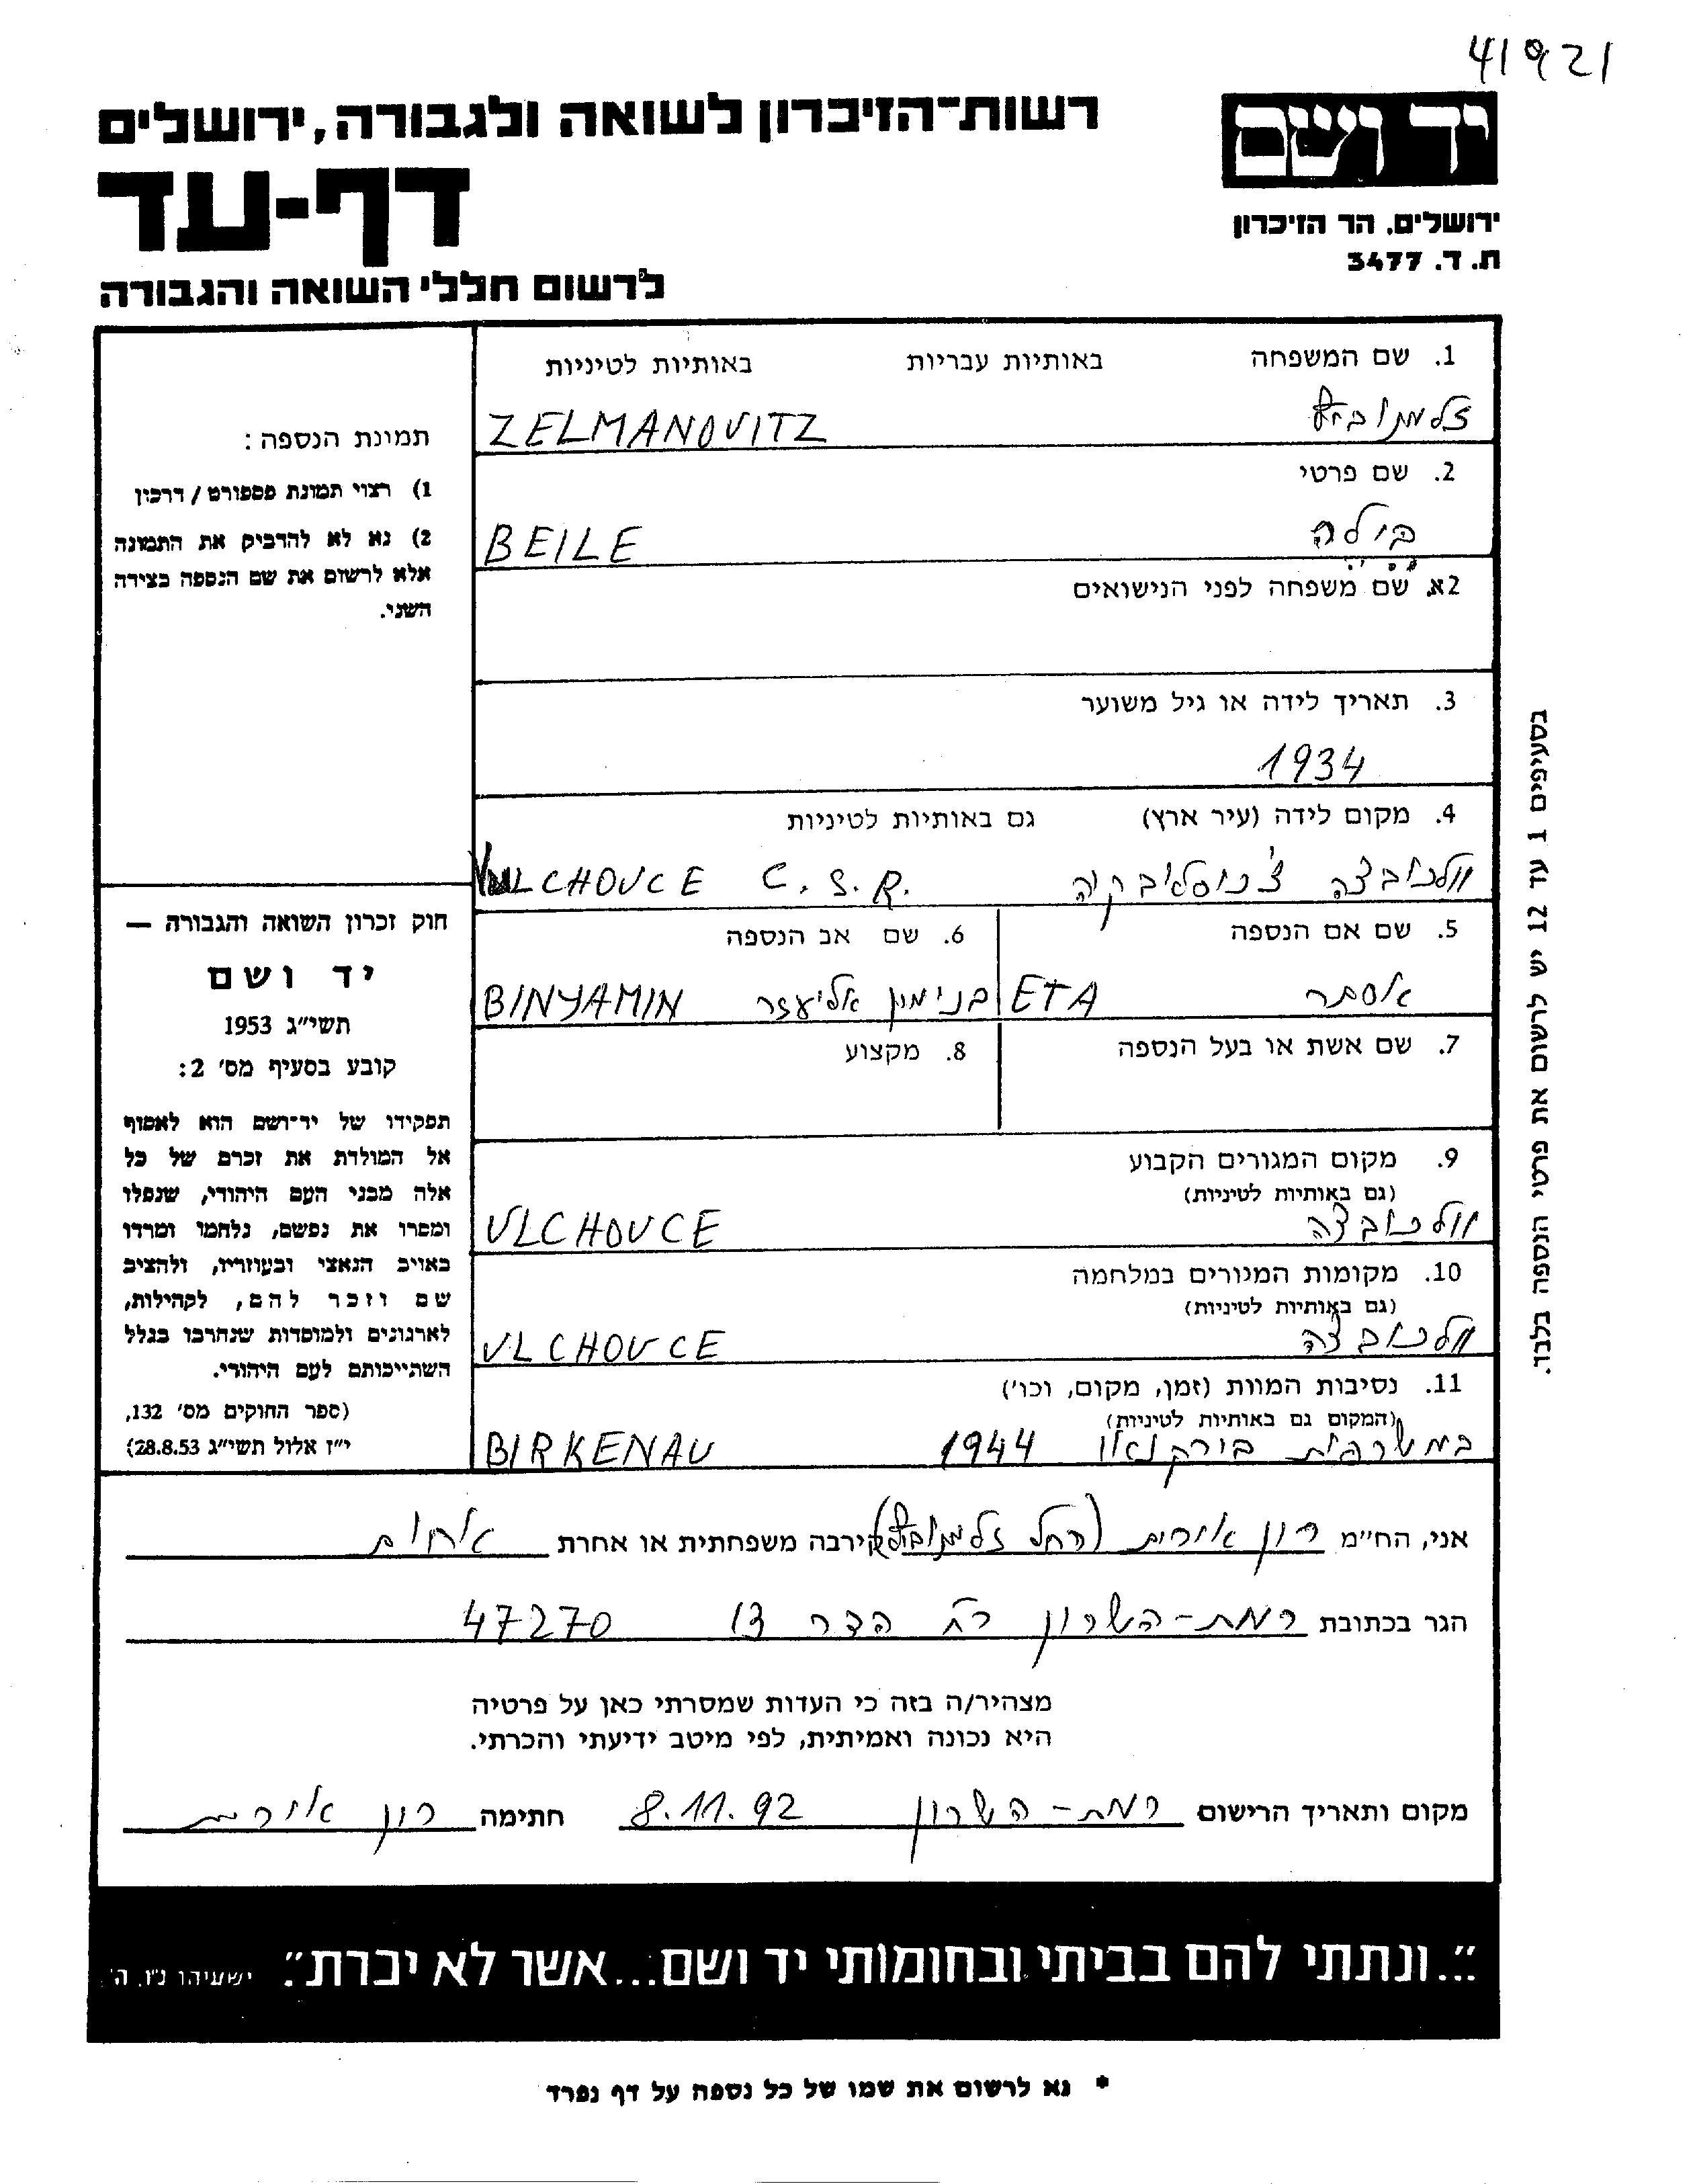 41921
רשות־הזיכרון לשואה ולגבורה, ירושלים
יד ושם
דף-עד
ירושלים. הר הזיכרון
ת. ד. 3477
לרשום חללי השואה והגבורה
1. שם המשפחה באותיות עבריות באותיות לטיניות
זלמנוביץ ZELMANOVITZ
2. שם פרטי
בילה BEILE
2א. שם משפחה לפני הנישואים
3. תאריך לידה או גיל משוער
1934
4. מקום לידה (עיר ארץ) גם באותיות לטיניות
וולכובצה צ'כוסלובקיה VULCHOVCE C.S.R.
5. שם אם הנספה
אסתר ETA
6. שם אב הנספה
בנימין אליעזר BINYAMIN
7. שם אשת או בעל הנספה
8. מקצוע
9. מקום המגורים הקבוע
(גם באותיות לטיניות)
וולכובצה VLCHOVCE
10. מקומות המגורים במלחמה
(גם באותיות לטיניות)
וולכובצה VLCHOVCE
11. נסיבות המוות (זמן, מקום, וכו')
(המקום גם באותיות לטיניות)
במשרפות בירקנאו 1944 BIRKENAU
תמונת הנספה:
1) רצוי תמונת פספורט / דרכון
2) נא לא להדביק את התמונה
אלא לרשום את שם הנספה בצידה
השני.
חוק זכרון השואה והגבורה —
יד ושם
תשי"ג 1953
קובע בסעיף מס' 2:
תפקידו של יד־ושם הוא לאסוף
אל המולדת את זכרם של כל
אלה מבני העם היהודי, שנפלו
ומסרו את נפשם, נלחמו ומרדו
באויב הנאצי ובעוזריו, ולהציב
שם וזכר להם, לקהילות,
לארגונים ולמוסדות שנחרבו בגלל
השתייכותם לעם היהודי.
(ספר החוקים מס' 132,
י"ז אלול תשי"ג 28.8.53)
בסעיפים 1 עד 12 יש לרשום את פרטי הנספה בלבד.
אני, הח"מ רון אורית (רחל זלמנוביץ) קירבה משפחתית או אחרת אחות
הגר בכתובת רמת-השרון רח' הדר 13 47270
מצהיר/ה בזה כי העדות שמסרתי כאן על פרטיה
היא נכונה ואמיתית, לפי מיטב ידיעתי והכרתי.
מקום ותאריך הרישום רמת-השרון 8.11.92 חתימה רון אורית
"...ונתתי להם בביתי ובחומותי יד ושם...אשר לא יכרת". ישעיהו נ"ו, ה'
* נא לרשום את שמו של כל נספה על דף נפרד